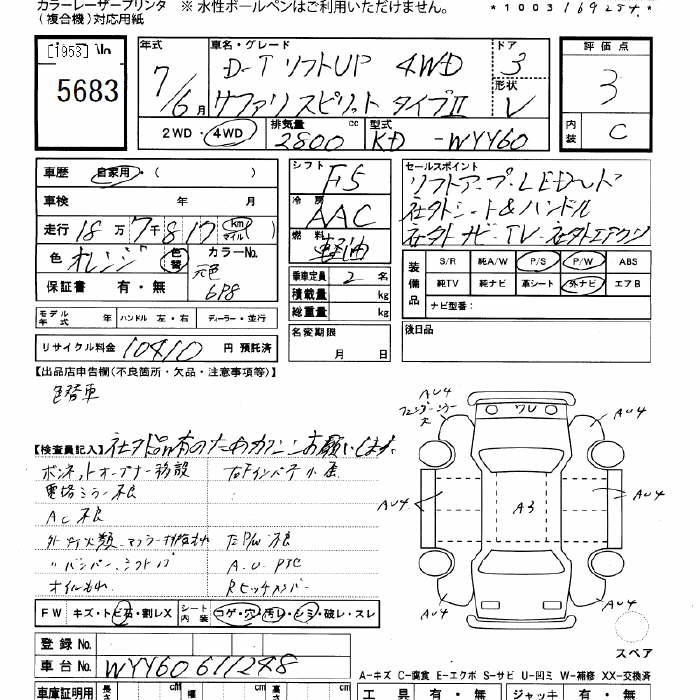 カラーレーザープリンタ ※ 水性ボールペンはご利用いただけません。
(複合機)対応用紙
*1003169254*
[1953]
5683
年式
7/6月
車名・グレード
D-T リフトUP 4WD
サファリ スピリット タイプⅡ
ドア
3
形状
V
評価点
3
内装
C
2WD・4WD
排気量
2800 cc
型式
KD -WYY60
車歴 自家用・( )
車検 年 月
走行 18万7千817 km マイル
色 オレンジ 色替 カラーNo. 元色 6P8
保証書 有・無
シフト
F5
冷房
AAC
燃料
軽油
乗車定員 2 名
積載量 kg
総重量 kg
セールスポイント
リフトアップ・LEDヘッド
社外シート&ハンドル
社外ナビ・TV・社外エアクリ
装備品
S/R 純A/W P/S P/W ABS
純TV 純ナビ 革シート 外ナビ エアB
ナビ型番:
モデル年式 年 ハンドル 左・右 ディーラー・並行
名変期限
月 日
後日品
リサイクル料金 10410 円 預託済
【出品店申告欄(不良箇所・欠品・注意事項等)】
色替車
【検査員記入】社外品有のためカクニンお願いします
ボンネットオープナー移設
電格ミラー不良
AC不良
オイルもれ
AU4
AU4
AU4
A3
AU4
AU4
AU4
FW キズ・トビ石・割レX シート内装 コゲ・穴・汚レ・シミ・破レ・スレ
スペア
登録No.
車台No. WYY60 611248
A-キズ C-腐食 E-エクボ S-サビ U-凹ミ W-補修 XX-交換済
車庫証明用 長さ cm 幅 cm 高さ cm
工具 有・無 ジャッキ 有・無